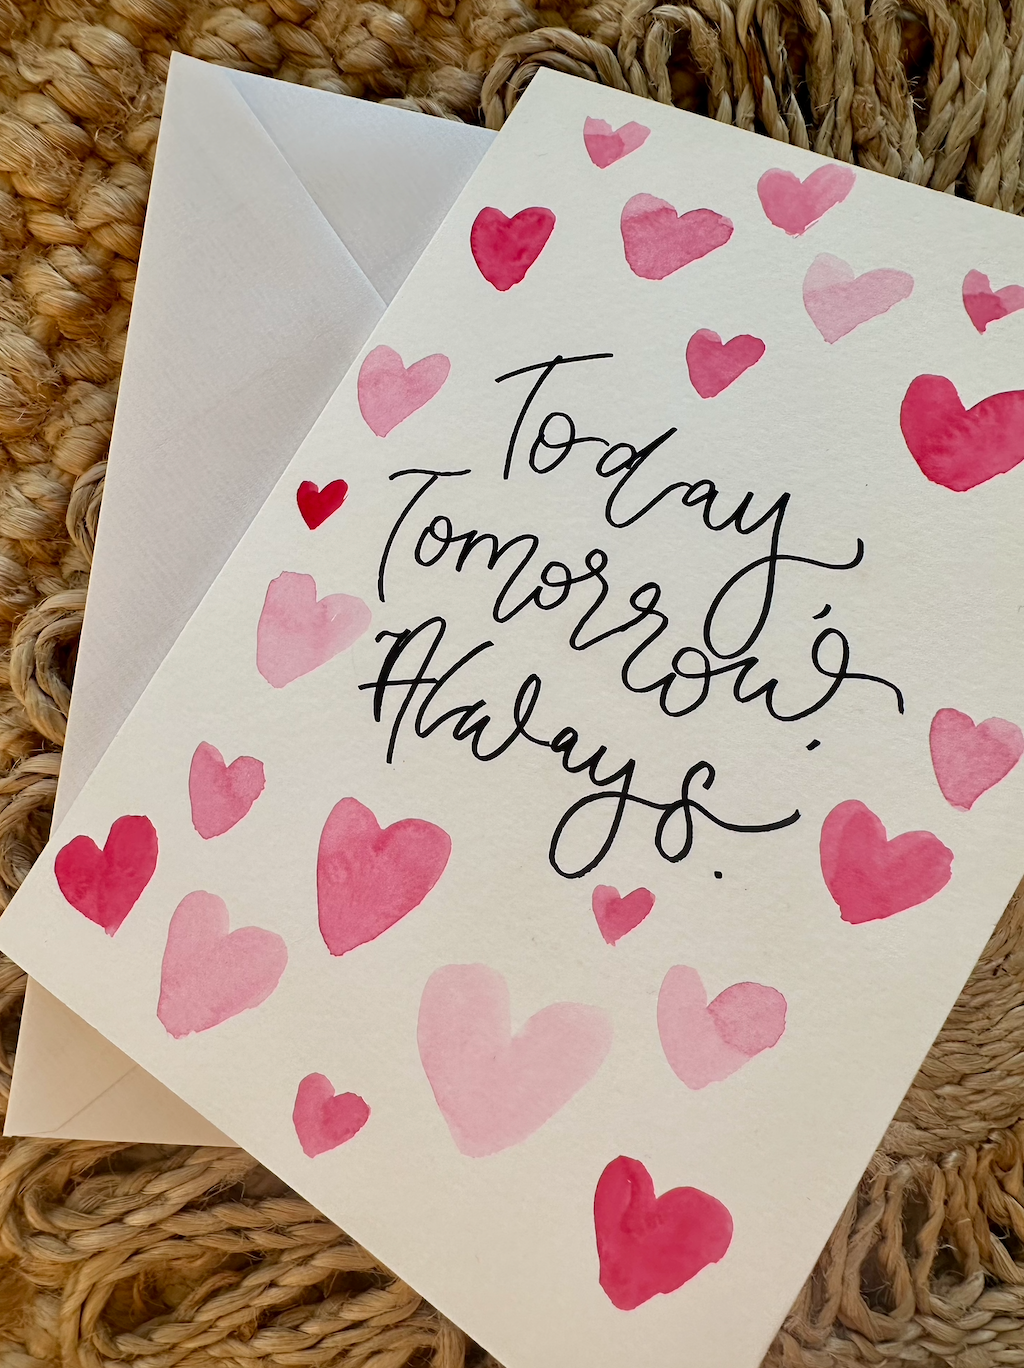 Today,
Tomorrow,
Always.